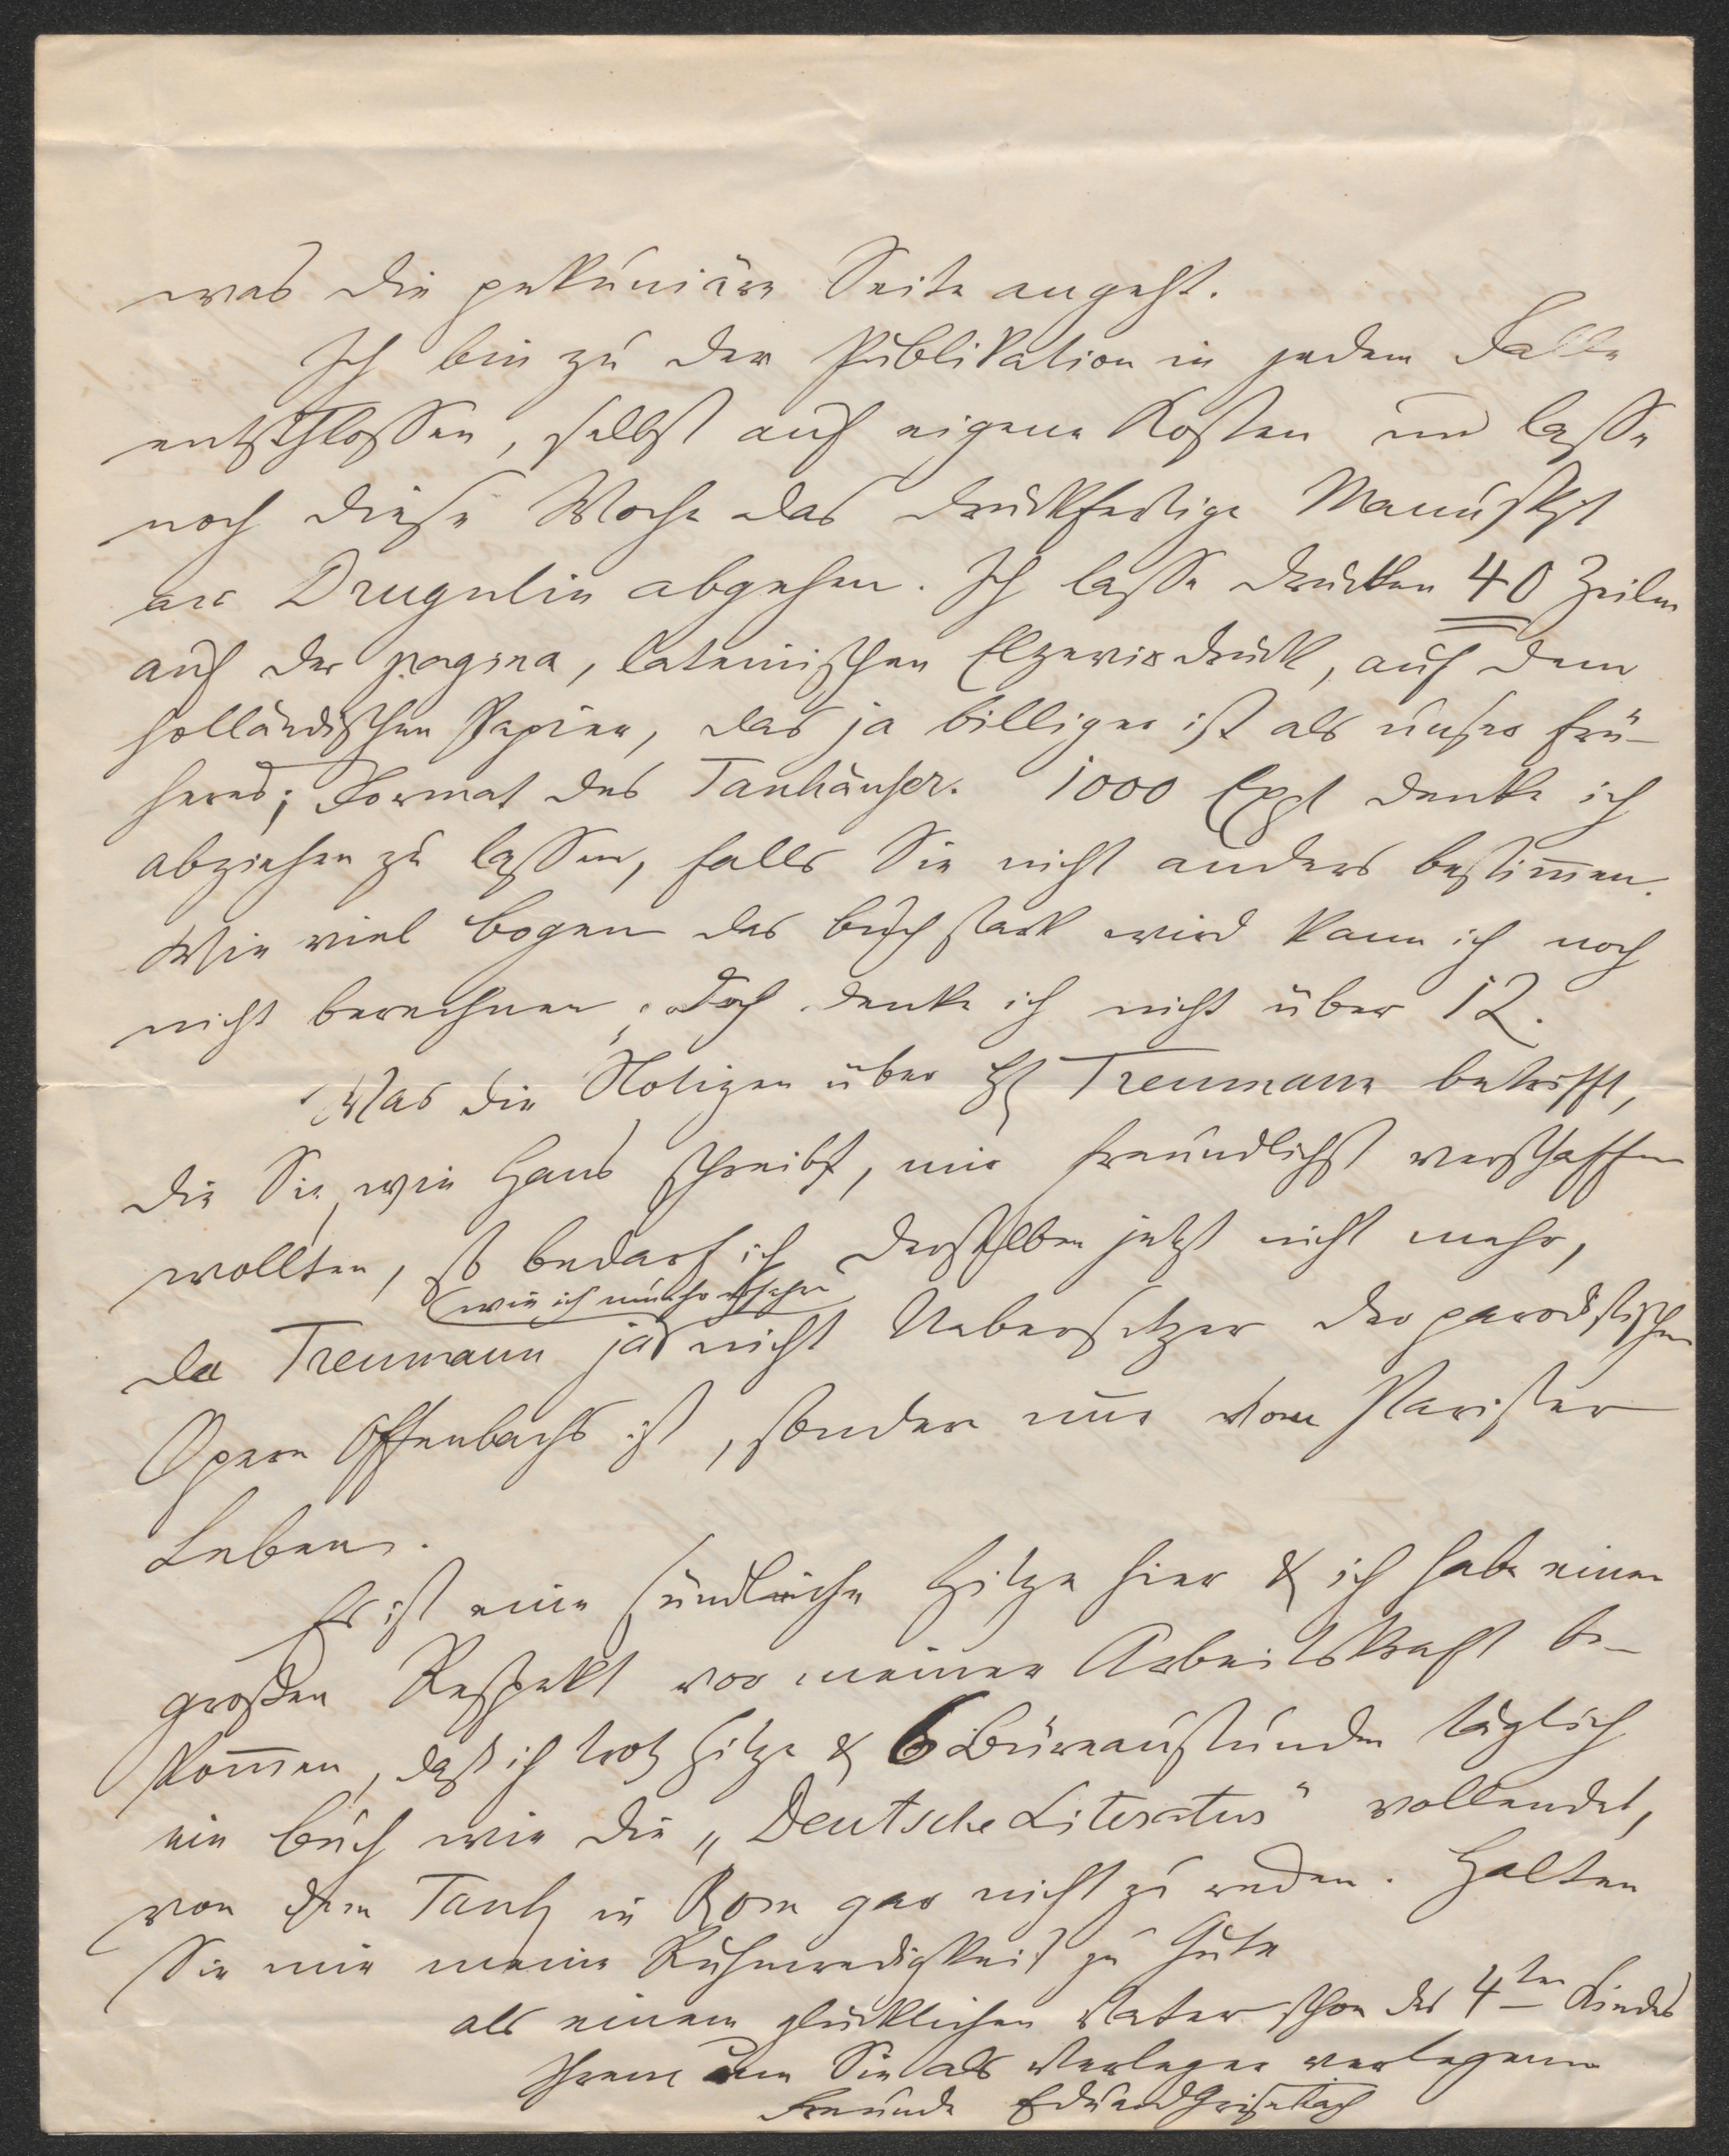 was die pekuniäre Seite angeht.
Ich bin zu der Publikation in jedem Falle
entschlossen, selbst auf eigene Kosten und lasse
noch diese Woche das druckfertige Manuskpt
an Drugulin abgehen. Ich lasse drucken 40 Zeilen
auf der pagina, lateinischen Elzevirdruck, auf dem
holländischen Papier, das ja billiger ist als unser frü-
heres; Format des Tanhäuser. 1000 Expl denke ich
abziehen zu lassen, falls Sie nicht anders bestim̄en.
Wie viel Bogen das Buch stark wird kann ich noch
nicht berechnen; doch denke ich nicht über 12.
Was die Notizen über Hr Treumann betrifft,
die Sie, wie Hans schreibt, mir freundlichst verschaffen
wollten, so bedarf ich derselben jetzt nicht mehr,
(wie ich nun
da Treumann ja nicht Uebersetzer der parodistischen
Opern Offenbachs ist, sondern nur vom Pariser
Leben.
Es ist eine sündliche Hitze hier & ich habe einen
großen Respekt vor meiner Arbeitskraft be-
kom̄en, daß ich trotz Hitze & 6 Büreaustunden täglich
ein Buch wie die „Deutsche Literatur" vollendet,
von dem Tanh in Rom gar nicht zu reden. Halten
Sie mir meine Ruhmredigkeit zu Gute
als einem glücklichen Vater schon des 4ten Kindes
Ihrem um Sie als Verleger verlegenen
Freunde Eduard Grisebach